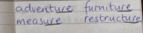 adventure furniture
measure restructure